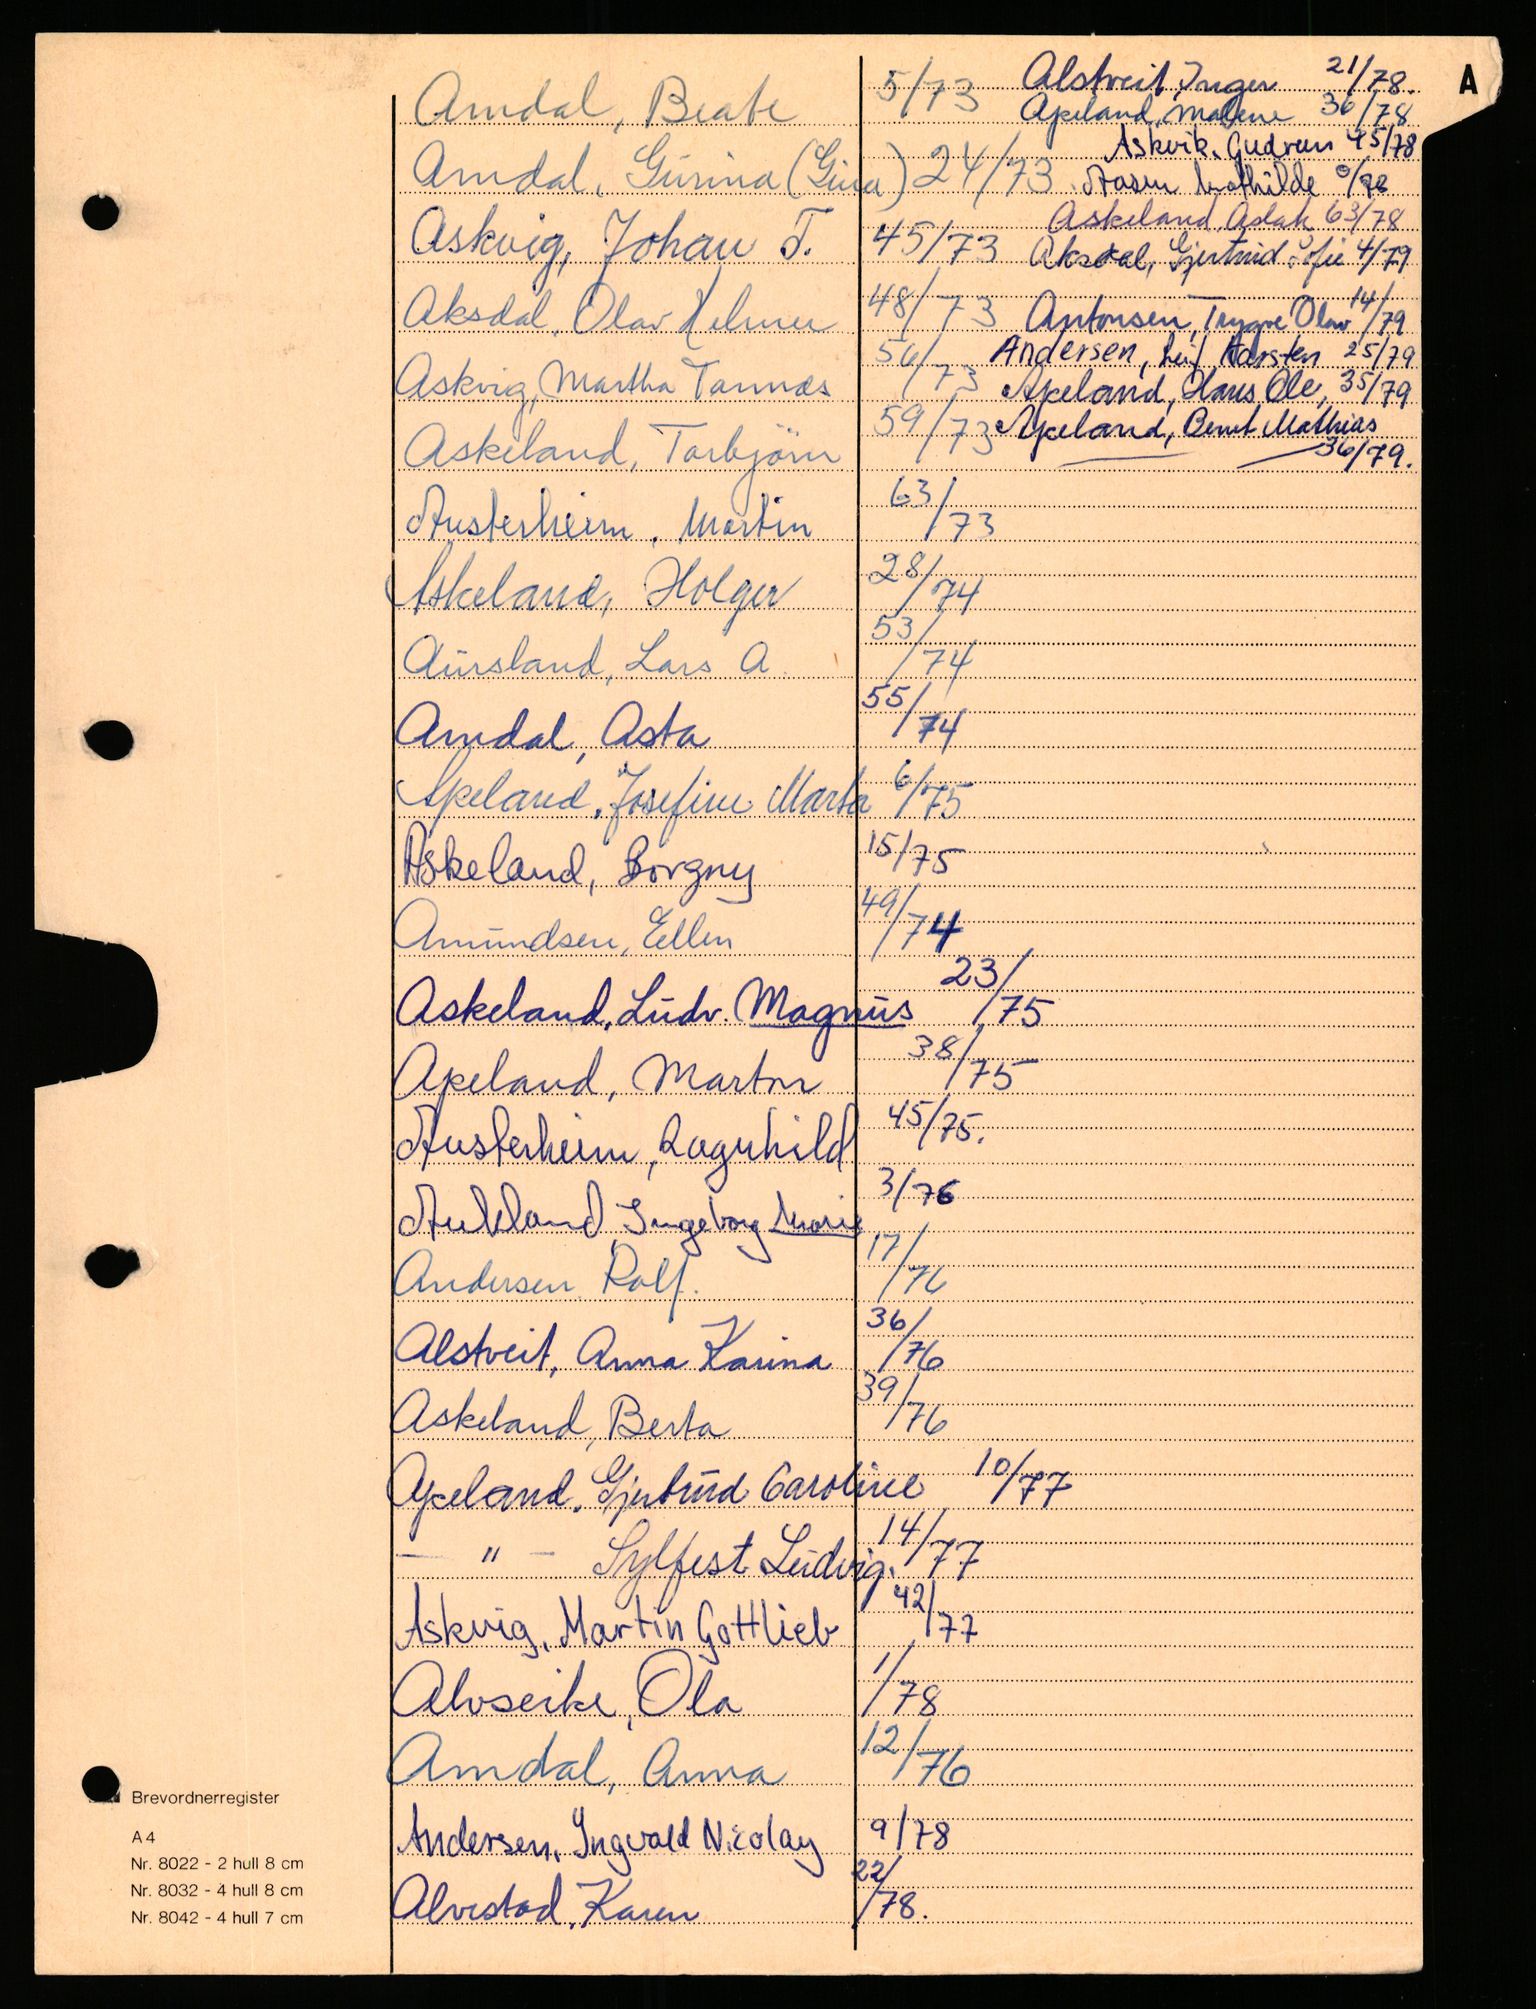 A
Amdal, Beate 5/73
Amdal, Gurina (Gina) 24/73
Askvig, Johan T. 45/73
Aksdal, Olav Helmer 48/73
Askvig, Martha Tannæs 56/73
Askeland, Torbjörn 59/73
Austerheim, Martin 63/73
Askeland, Holger 28/74
Aursland, Lars A. 53/74
Amdal, Asta 55/74
Apeland, Josefine Marta 6/75
Askeland, Borgny 15/75
Amundsen, Ellen 49/74
Askeland, Ludv. Magnus 23/75
Apeland, Marton 38/75
Austerheim, Ragnhild 45/75.
Aukland, Ingeborg Marie 3/76
Andersen Rolf. 17/76
Alstveit, Anna Karina 36/76
Askeland, Berta 39/76
Apeland, Gjertrud Caroline 10/77
— " — Sylfest Ludvig. 14/77
Askvig, Martin Gottlieb 42/77
Alvseike, Ola 1/78
Amdal, Anna 12/76
Andersen, Ingvald Nicolay 9/78
Alvestad, Karen 22/78.
Alstveit, Inger 21/78.
Apeland, Malene 36/78
Askvik, Gudrun 45/78
Aasen Mathilde
Askeland, Aslak 63/78
Aksdal, Gjertrud Sofie 4/79
Antonsen, Trygve Olav 14/79
Andersen, Leif Karsten 25/79
Apeland, Hans Ole, 35/79
Apeland, Bernt Mathias
36/79.
Brevordnerregister
A4
Nr. 8022 - 2 hull 8 cm
Nr. 8032 - 4 hull 8 cm
Nr. 8042 - 4 hull 7 cm